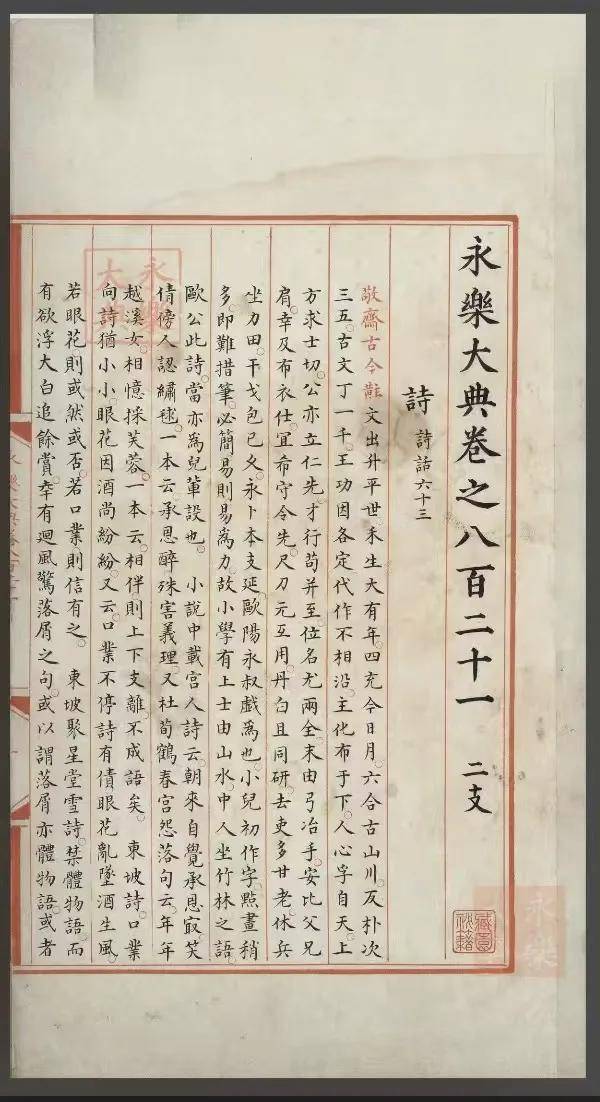 永樂大典卷之八百二十一 二支
詩 詩話六十三
敬齋古今黈文出升平世禾生大有年四充今日月六合古山川反朴次
三五古文丁一千王功因各定代作不相沿主化布于下人心孚自天上
方求士切公亦立仁先才行苟并至位名尤兩全末由弓冶手安比父兄
肩幸及布衣仕冝希守令先尺刀元互用丹白且同研去吏多廿老休兵
坐力田干戈包已久永卜本支延歐陽永叔戲為也小兒初作字㸃畫稍
多即難措筆必簡易則易為力故小學有上士由山水中人坐竹林之語
歐公此詩當亦為兒軰設也 小說中載宫人詩云朝來自覺承恩㝡笑
倩傍人認繡毬一本云承恩醉殊害義理又杜荀鶴春宫怨落句云年年
越溪女相憶採芙蓉一本云相伴則上下支離不成語矣 東坡詩口業
向詩猶小小眼花因酒尚紛紛又云口業不停詩有債眼花亂墜酒生風
若眼花則或然或否若口業則信有之 東坡聚星堂雪詩禁體物語而
有欲浮大白追餘賞幸有迴風驚落屑之句或以謂落屑亦體物語或者
永樂大典
藏園祕籍